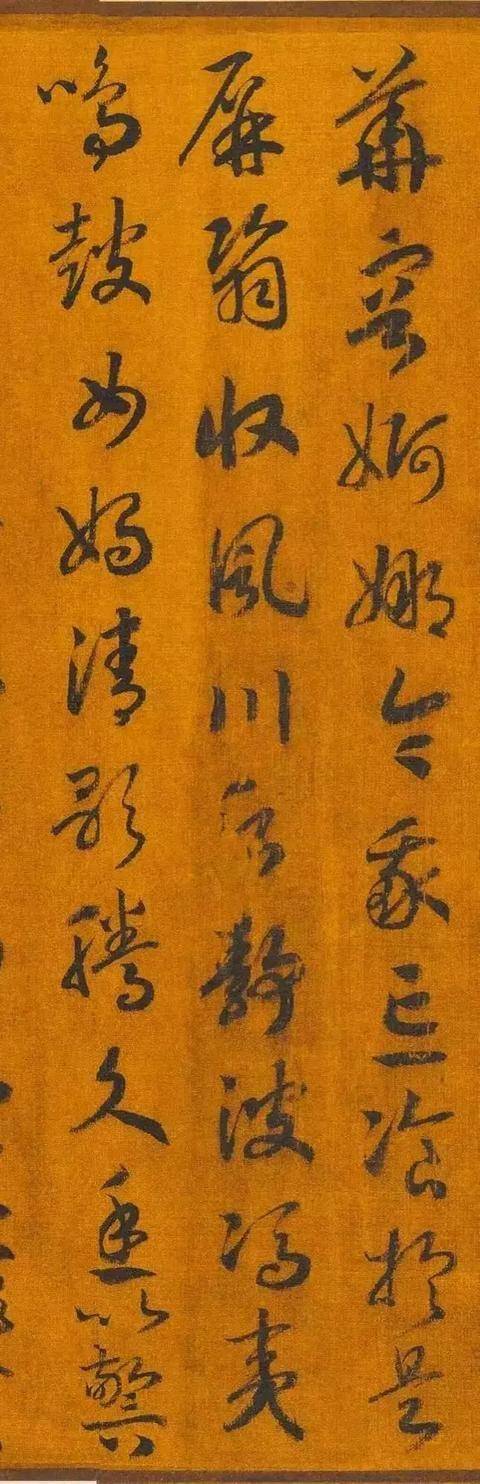 華容婀娜令我忘飡於是
屏翳收風川后靜波馮夷
鳴鼓女媧清歌騰文魚以警